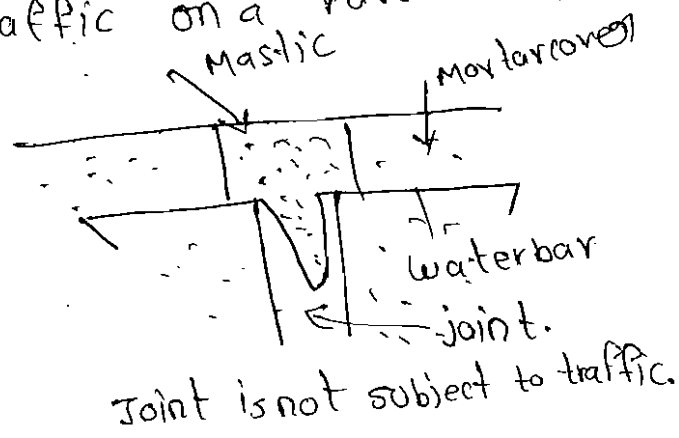 affic on a
Mastic
Mortar cover
Waterbar
joint.
Joint is not subject to traffic.